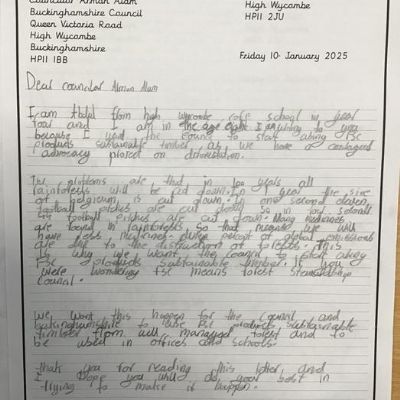 Councillor Arman Alam
Buckinghamshire Council
Queen Victoria Road
High Wycombe
Buckinghamshire
HP11 1BB
High Wycombe
HP11 2JU
Friday 10 January 2025
Dear councilor Alam
I am from high wycombe school in year
four and I am in the age eight I am writing to you
because I want the council to start using FSC
products sustainable timber. As we have a
advocacy project on deforestation.
The problems are that in 100 years all
rainforests will be cut down. In a year the size
of belgium is cut down. In one second eleven
football pitches are cut
football pitches are cut down. Many medicines
are found in rainforests so that means we will
have less medicines. percent of global emissions
are due to the destruction of forests. This
is why we want the council to start using
FSC products sustainable timber. If you
were wondering FSC means forest Stewardship
Council.
We want this happen for the council and
buckinghamshire to use FSC products sustainable
timber from well managed forest and to
be used in offices and schools.
thank you for reading this letter and
I hope you will do your best in
trying to make it happen.